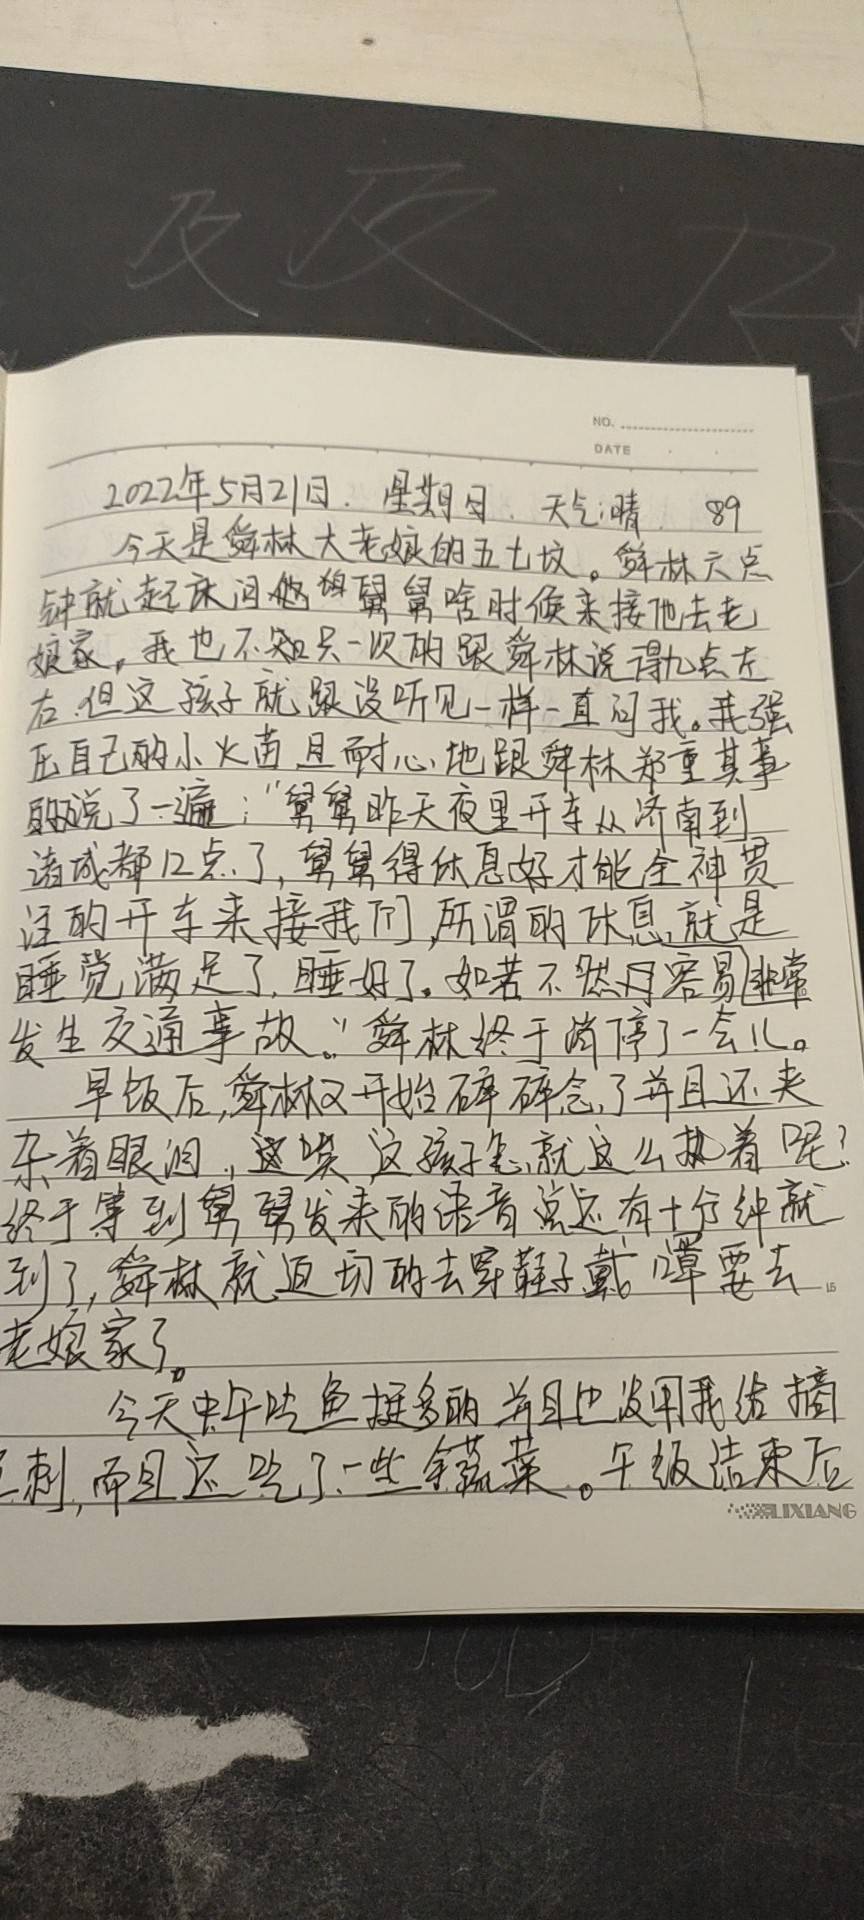 及 及
NO.
DATE
2022年5月21日. 星期日. 天气:晴. 89
今天是舜林大老娘的五七坟。舜林六点
钟就起床问他舅舅啥时候来接他去老
娘家。我也不知只一次的跟舜林说得九点左
右.但这孩子就跟没听见一样一直问我。我强
压自己的小火苗,且耐心地跟舜林郑重其事
的说了一遍:“舅舅昨天夜里开车从济南到
诸城都12点了,舅舅得休息好才能全神贯
注的开车来接我们,所谓的休息,就是
睡觉满足了,睡好了。如若不然容易非常
发生交通事故。”舜林终于消停了一会儿。
早饭后,舜林又开始碎碎念了并且还夹
杂着眼泪.,这孩子怎就这么执着呢?
终于等到舅舅发来的语音说还有十分钟就
到了,舜林就迫切的去穿鞋子戴罩要去
老娘家了。
15
今天中午吃鱼挺多的并且也没用我给摘
刺,而且还吃了一些蔬菜。午饭结束后
LIXIANG